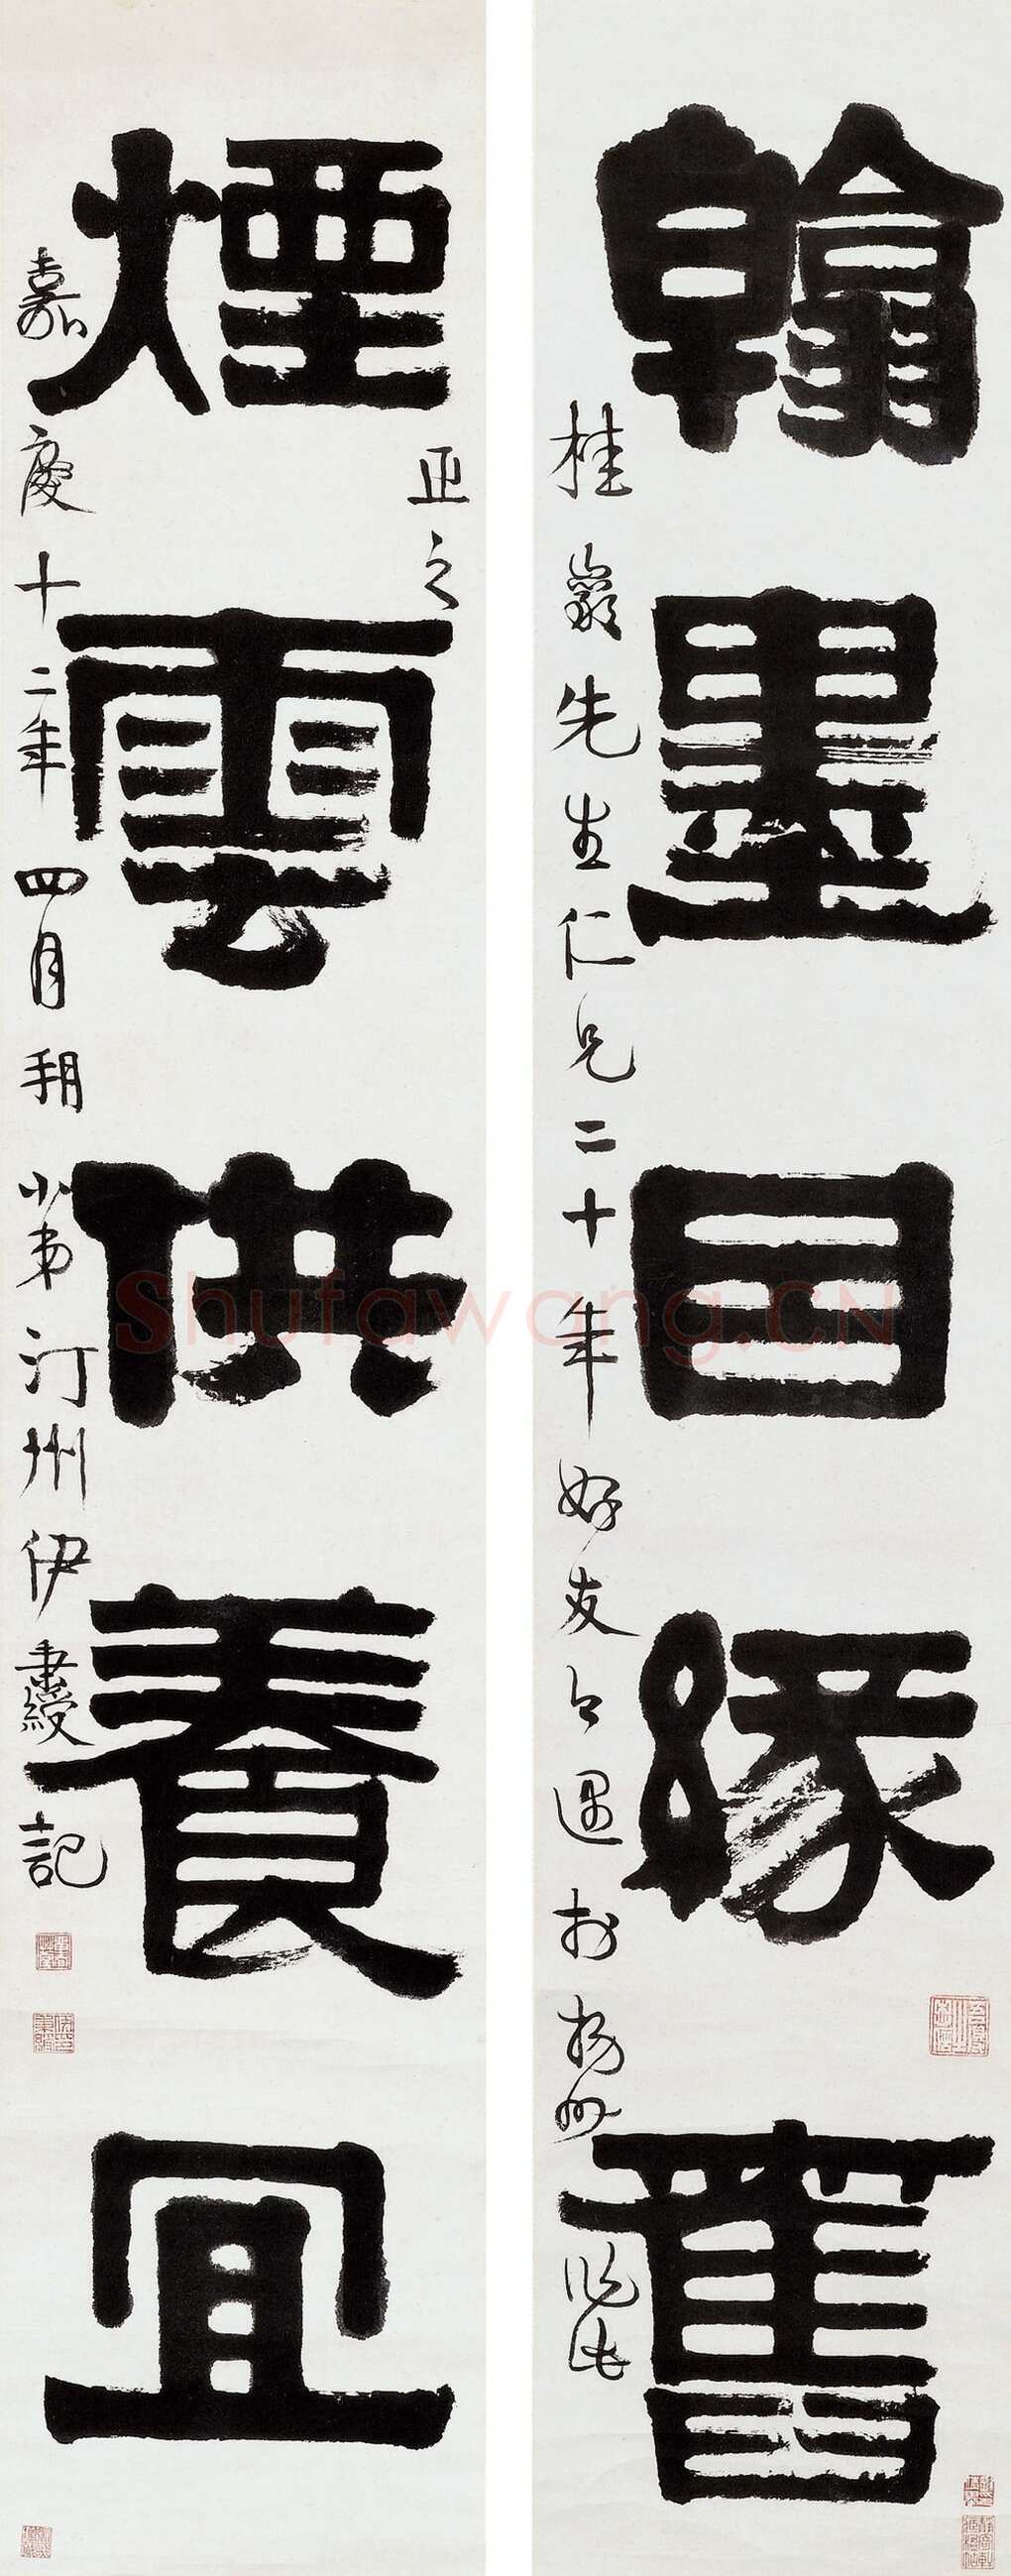 翰墨因緣舊
桂巖先生仁兄二十年好友今遇於揚州此
正之
煙雲供養宜
嘉慶十二年四月朔小弟汀州伊秉綬記
Shufawang.CN